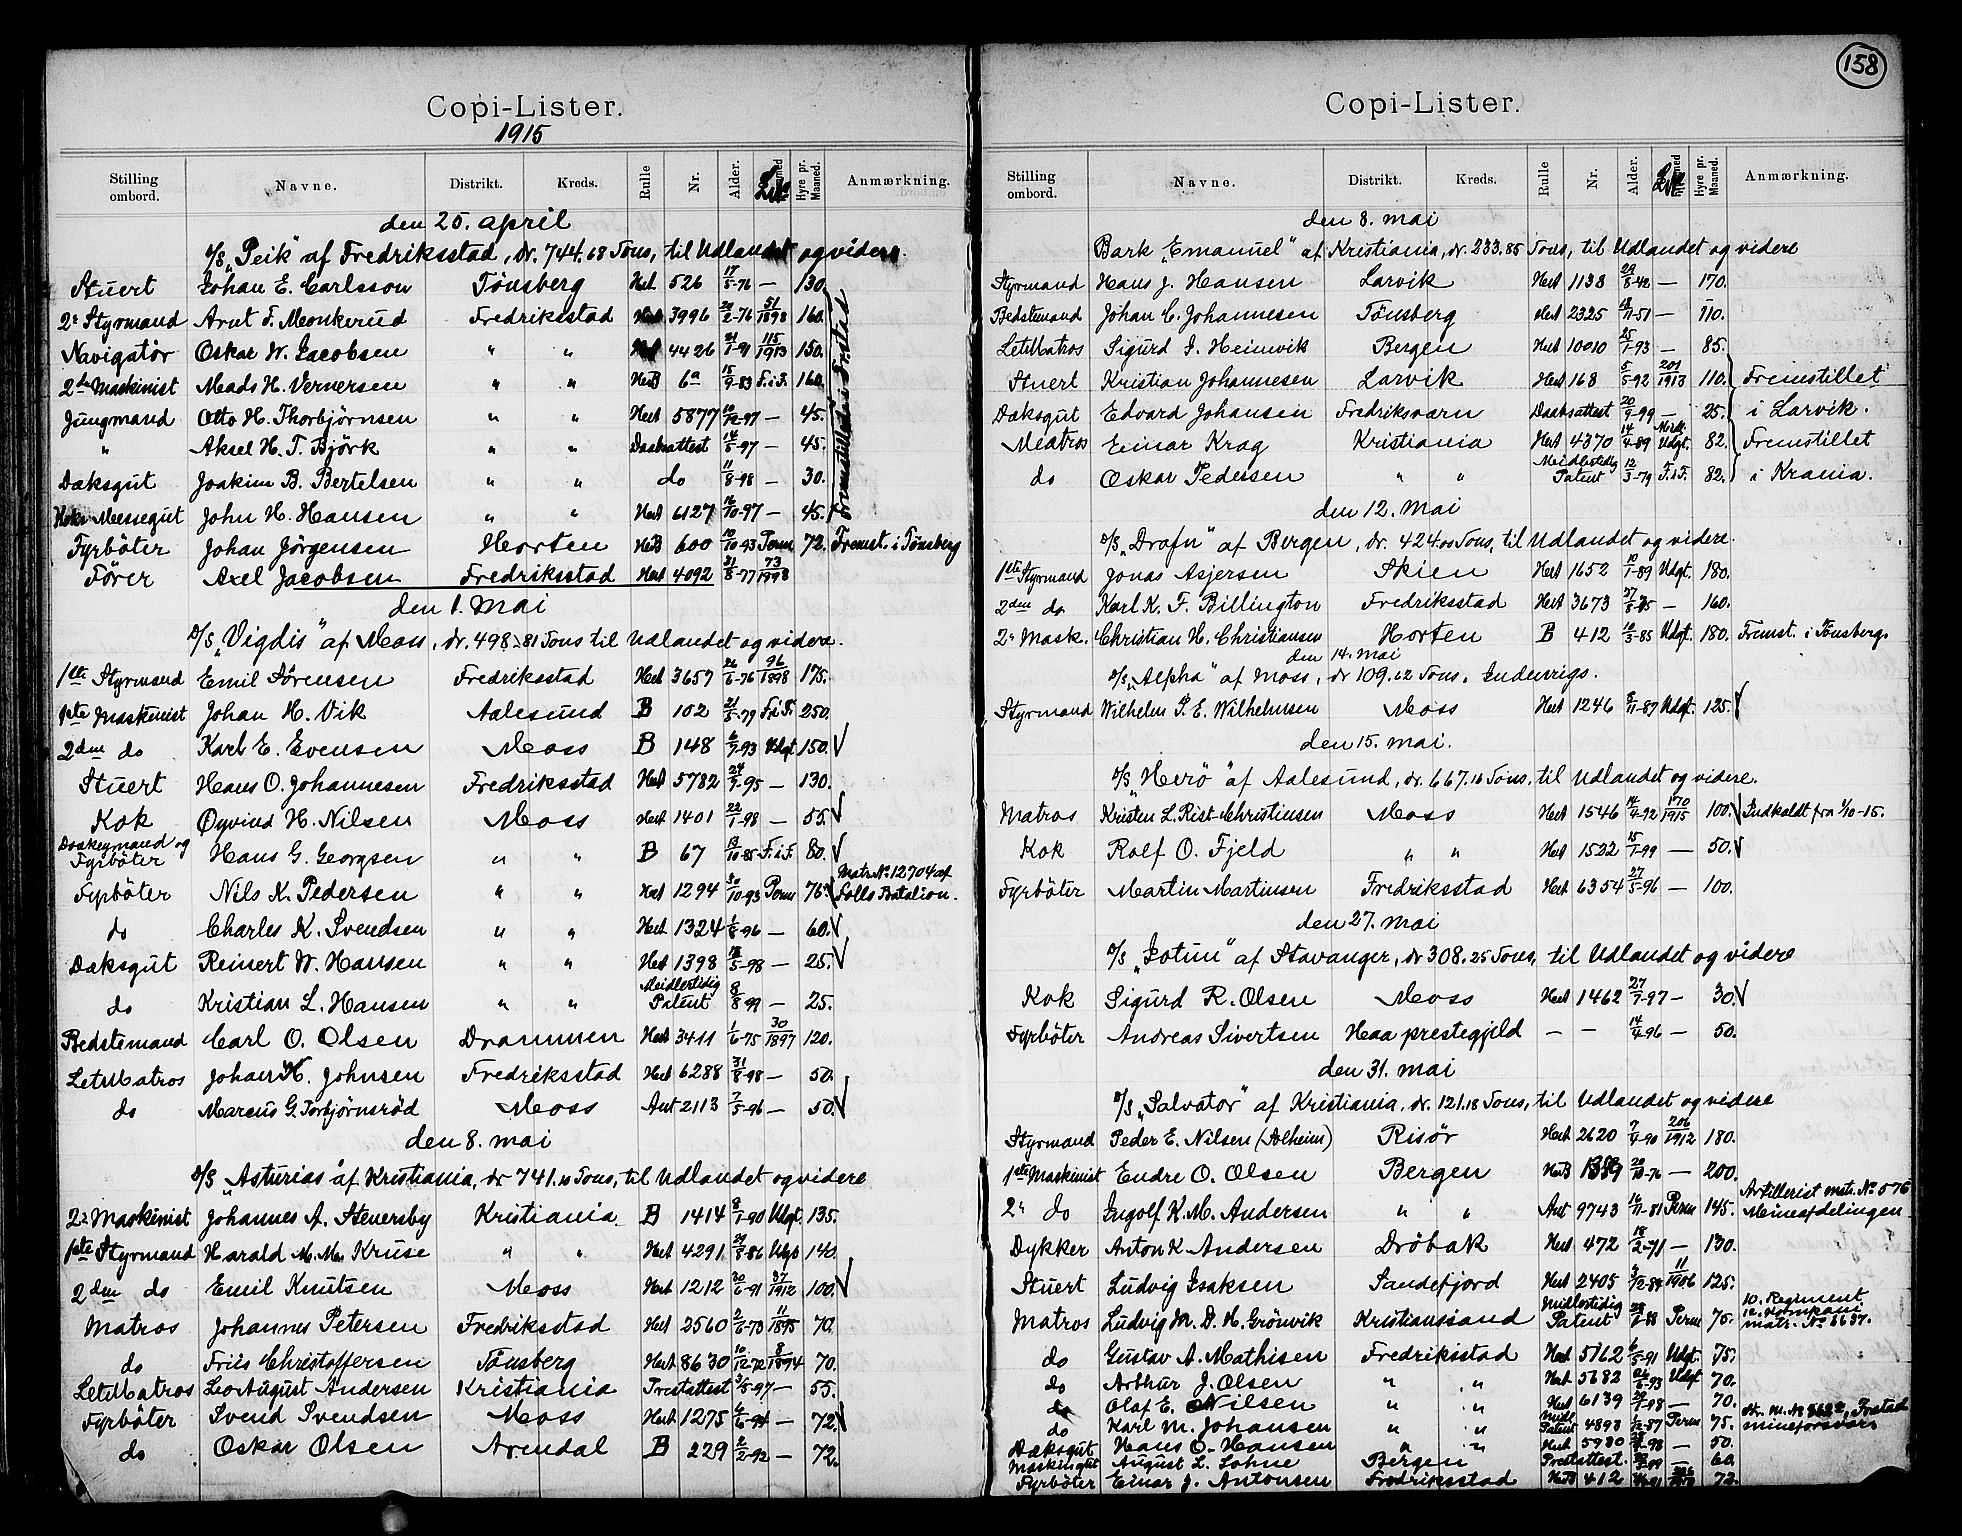 158
Copi-Lister.
1915
Stilling ombord. Navne. Distrikt. Kreds. Rulle Nr. Alder. Hyre pr. Maaned. Anmærkning.
den 25. april
S/S „Peik" af Fredriksstad, dr. 744.68 Tons, til Udlandet og videre.
Stuert Johan E. Carlsson Tønsberg Hert 526 17/5-76 — 130.
2n Styrmand Arnt F. Monkerud Fredriksstad Hert 3996 20/2-76 51/1898 160.
Navigatør Oskar W. Jacobsen " " 4426 21/1-91 115/1913 150.
2den Maskinist Mads H. Vernersen " " HertB 6a 15/9-83 F.i.F. 160.
Jungmand Otto H. Thorbjørnsen " " Hert 5877 10/12-97 — 45.
" Aksel H. T. Björk " " Daabsattest 14/5-97 — 45.
Dæksgut Joakim B. Bertelsen " " do 11/8-98 — 30.
Kok & Messegut John H. Hansen " " Hert 6127 16/10-97 — 45.
Fremstilledes i F.stad
Fyrböter Johan Jörgensen Horten HertB 600 10/10-93 Perm 72. Fremst. i Tønsberg
Förer Axel Jacobsen Fredriksstad Hert 4092 31/8-77 73/1898
den 1. Mai
D/S „Vigdis" af Moss, dr. 498.81 Tons til Udlandet og videre.
1ste Styrmand Emil Sörensen Fredriksstad Hert 3657 26/6-76 96/1898 175.
1ste Maskinist Johan H. Vik Aalesund B 102 21/5-79 F.i.F. 250.
2den do Karl E. Evensen Moss B 148 6/7-93 Udgt. 150.
Stuert Hans O. Johannesen Fredriksstad Hert 5782 24/9-95 — 130.
Kok Øyvind H. Nilsen Moss Hert 1401 22/1-98 — 55.
Donkeymand og Fyrböter Hans G. Georgsen " " B 67 19/10-85 F.i.F. 80.
Fyrböter Nils K. Pedersen " " Hert 1294 30/10-93 Perm 76. Matr. No 12704 af Follo Batalion.
do Charles K. Svendsen " " Hert 1324 1/8-96 — 60.
Dæksgut Reinert W. Hansen " " Hert 1398 18/5-98 — 25.
do Kristian L. Hansen " " Meidlertidig Patent 9/8-99 — 25.
Bedstemand Carl O. Olsen Drammen Hert 3411 1/6-75 30/1897 120.
LetMatros Johan K. Johnsen Fredriksstad Hert 6288 31/8-98 — 50.
do Marcus G. Torbjørnsrød Moss Ant 2113 7/5-96 — 50.
den 8. mai
S/S „Asturias" af Kristiania, dr 741.10 Tons, til Udlandet og videre
2n Maskinist Johannes A. Stenersby Kristiania B 1414 8/1-90 Udgt. 135.
1ste Styrmand Harald M. M. Kruse " " Hert 4291 29/8-86 Udgt 140.
2den do Emil Knutsen Moss Hert 1212 30/6-91 37/1912 100.
Matros Johannes Petersen Fredriksstad Hert 2560 2/6-73 11/1895 70.
do Friis Christoffersen Tönsberg Hert 8630 10/12-72 8/1894 70.
LetMatros Leo August Andersen Kristiania Prestattest 3/5-97 — 55.
Fyrböter Svend Svendsen Moss Hert 1275 6/6-94 — 72.
do Oskar Olsen Arendal B 229 2/2-92 — 72.
Copi-Lister.
Stilling ombord. Navne. Distrikt. Kreds. Rulle Nr. Alder. Hyre pr. Maaned. Anmærkning.
den 8. mai
Bark „Emanuel" af Kristiania, dr. 233.85 Tons, til Udlandet og videre
Styrmand Hans J. Hansen Larvik Hert 1138 29/8-42 — 170.
Bedstemand Johan C. Johannesen Tönsberg Hert 2325 18/11-51 — 110.
LetMatros Sigurd J. Heimvik Bergen Hert 10010 25/1-93 — 85.
Stuert Kristian Johannesen Larvik Hert 168 5/5-92 201/1913 110. Fremstillet
Dæksgut Edvard Johansen Fredriksværn Daabsattest 20/9-99 — 25. i Larvik.
Matros Einar Krag Kristiania Hert 4370 14/4-89 Midl. Udgt. 82. Fremstillet
do Oskar Pedersen " " Meidlertidig Patent 12/3-79 F.i.F. 82. i Krania.
den 12. Mai
S/S „Drafn" af Bergen, dr. 424.00 Tons, til Udlandet og videre.
1ste Styrmand Jonas Asjersen Skien Hert 1652 10/1-89 Udgt. 180.
2den do Karl K. F. Billington Fredriksstad Hert 3673 27/8-75 — 160.
2n Mask. Christian H. Christiansen Horten B 412 10/3-85 Udgt. 180. Fremst. i Tönsberg.
den 14. Mai
S/S „Alpha" af Moss, dr 109.62 Tons. Indenrigs.
Styrmand Wilhelm P. E. Wilhelmsen Moss Hert 1246 8/11-87 Udgt. 125.
den 15. Mai.
S/S „Herö" af Aalesund, dr. 667.16 Tons, til Udlandet og videre.
Matros Kristen L. Rist-Christiansen Moss Hert 1546 14/4-92 170/1915 100. Indkaldt fra 1/10-15.
Kok Rolf O. Fjeld " " Hert 1522 15/1-99 — 50.
Fyrböter Martin Martinsen Fredriksstad Hert 6354 27/5-96 — 100.
den 27. mai
S/S „Jotun" af Stavanger, dr 308.25 Tons, til Udlandet og videre
Kok Sigurd R. Olsen Moss Hert 1462 27/7-97 — 30.
Fyrböter Andreas Sivertsen Haa prestegjeld — — 14/4-96 — 50.
den 31. mai
S/S „Salvator" af Kristiania, dr. 121.18 Tons, til Udlandet og videre
Styrmand Peder E. Nilsen (Solheim) Risör Hert 2620 7/4-90 206/1912 180.
1ste Maskinist Endre O. Olsen Bergen HertB 20/10-76 — 200.
2n do Ingolf K. M. Andersen " " Ant 9743 16/11-81 Perm 145. Artillerist matr. No 576 Mineafdelingen
Dykker Anton K Andersen Dröbak Hert 472 18/2-71 — 130.
Stuert Ludvig Isaksen Sandefjord Hert 2405 3/12-84 11/1906 125.
Matros Ludvig M. D. H. Grönvik Kristianssand Midlertidig Patent 28/7-88 Perm 75. 10. Regiment 12. Kompani matr. No 8637.
do Gustav A. Mathisen Fredriksstad Hert 5162 6/5-91 Udgt. 75.
do Arthur J. Olsen " " Hert 5682 Udgt 70.
do Olaf E. Nilsen " " Hert 6139 29/7-98 — 70.
do Karl M. Johansen " " Midl Patent 4893 1/12-87 Perm 75. mineforsvar
Dæksgut Hans O. Hansen " " Hert 5980 — 50.
Maskingut August L. Lohne Bergen Prestattest. — 60.
Fyrböter Einar J. Antonsen Fredriksstad HertB 412 72.